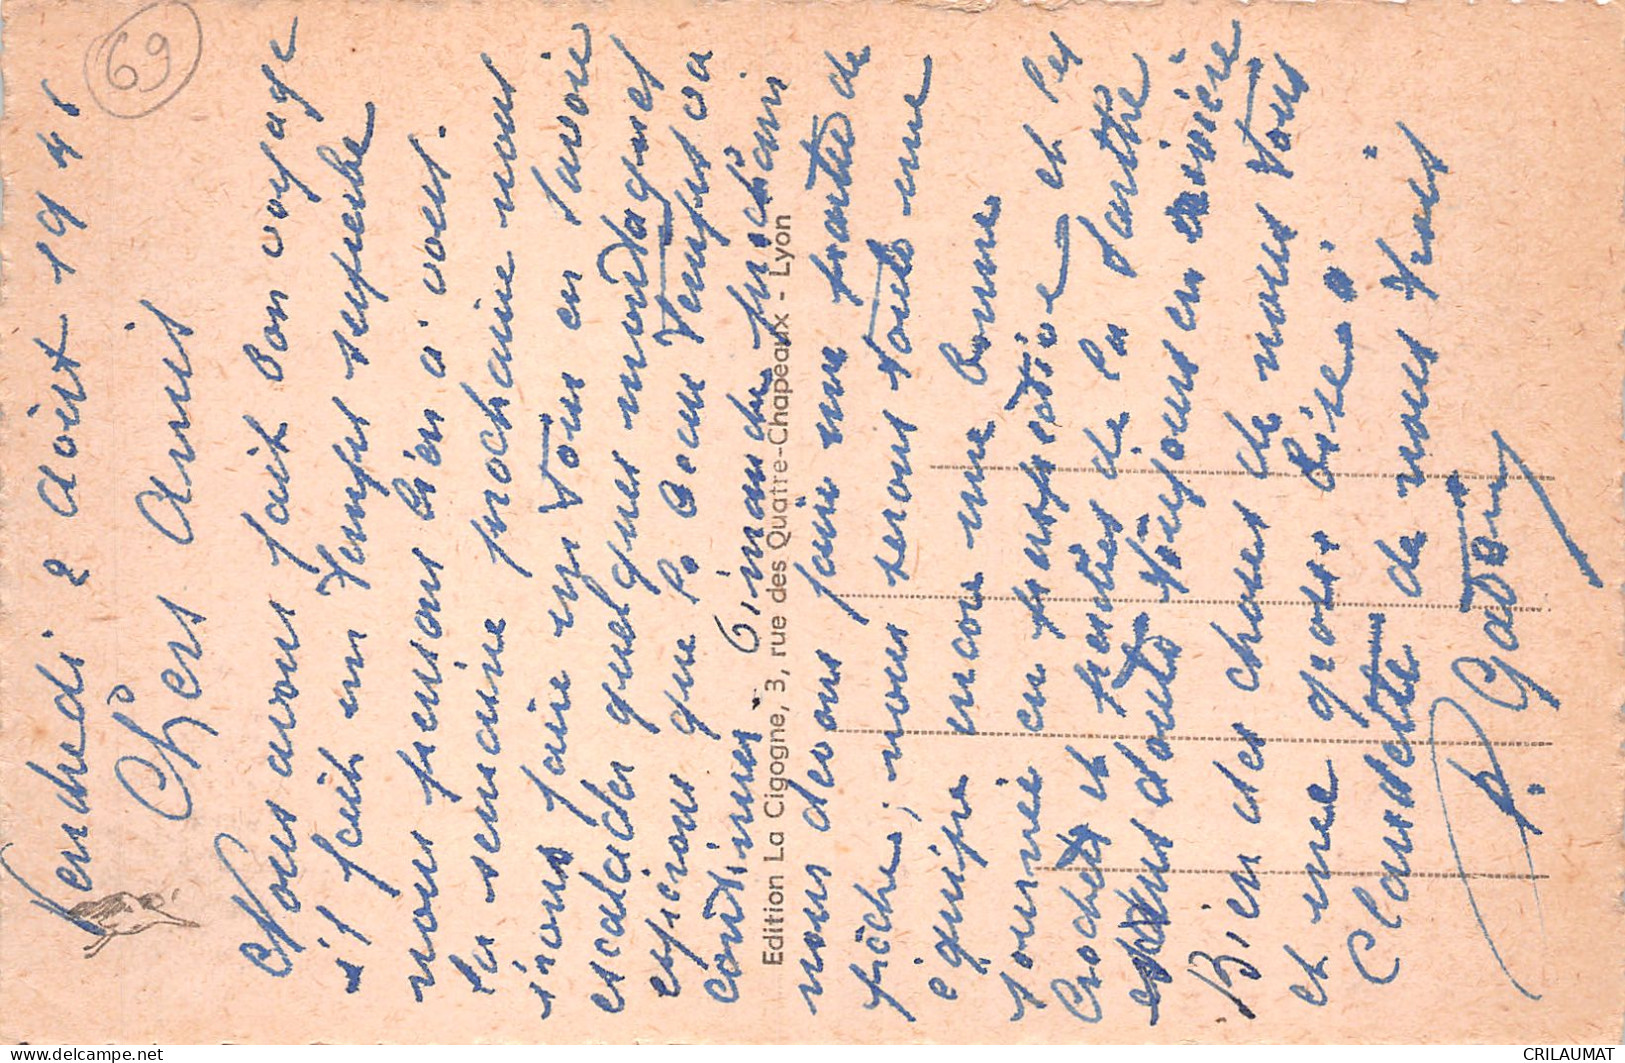 69
Vendredi 2 août 1946
Chers Amis
Nous avons fait bon voyage
il fait un temps superbe
nous pensons bien à vous.
la semaine prochaine nous
irons faire un tour en Savoie
escalader quelques montagnes
espérons que le beau temps va
continuer. Dimanche prochain
Edition La Cigogne, 3, rue des Quatre-Chapeaux - Lyon
nous devons faire une partie de
pêche, nous serons toute une
équipe encore une bonne
journée en perspective et les
Crochets et truites de la Sarthe
sans doute toujours en rivière
Bien des choses de nous tous
et une gross bise à
Claudette de nous trois
P. Gatoin
CRILAUMAT